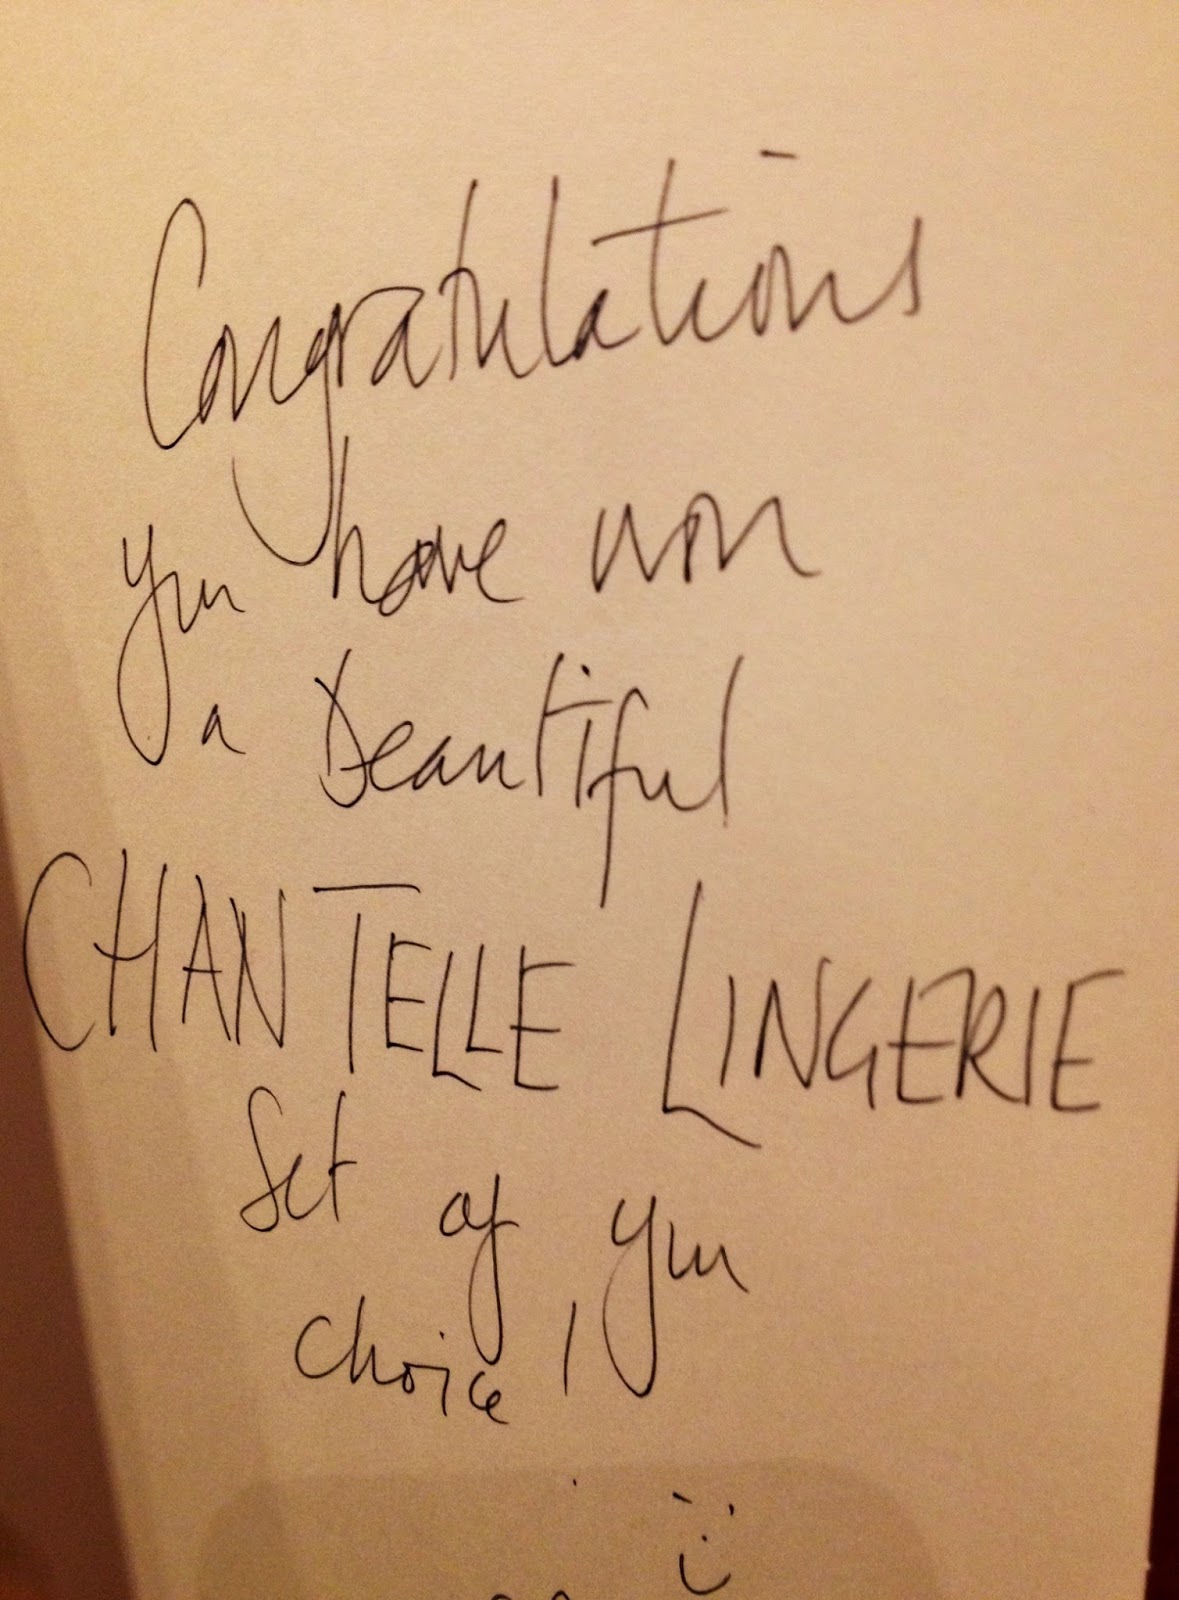 Congratulations
you have won
a beautiful
CHANTELLE LINGERIE
Set of your
choice!